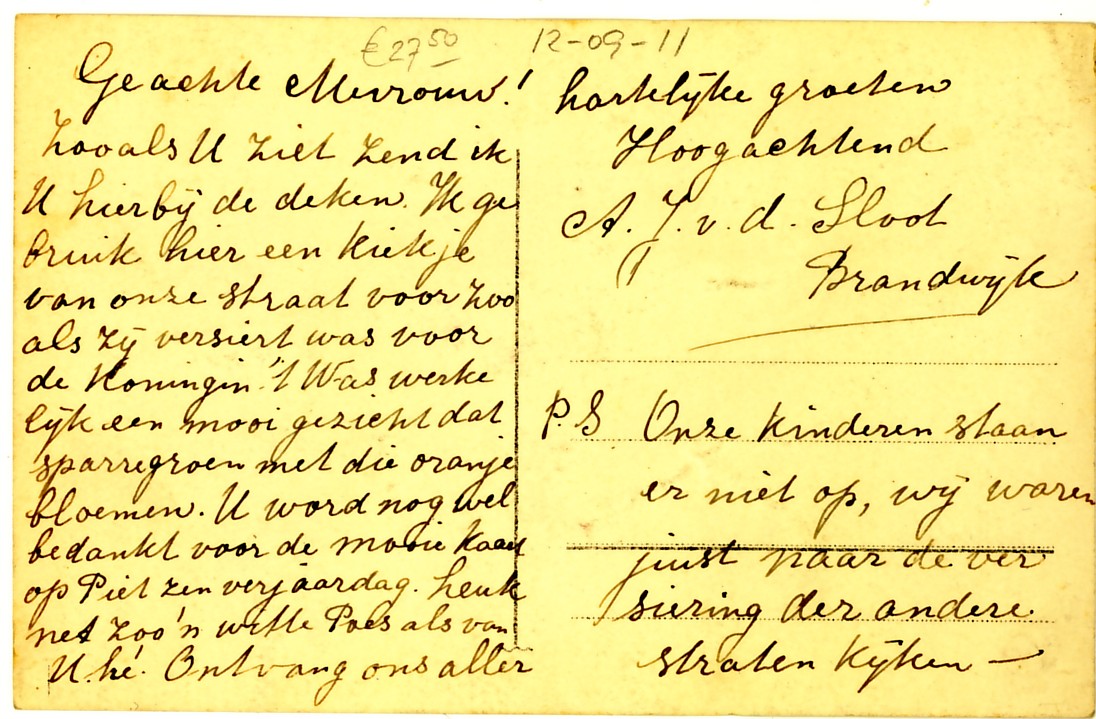 € 27 50
12-09-11
Geachte Mevrouw!
Zooals U ziet zend ik
U hierbij de deken. Ik ge
bruik hier een kiekje
van onze straat voor zoo
als zij versiert was voor
de Koningin 't Was werke
lijk een mooi gezicht dat
sparregroen met die oranje
bloemen. U word nog wel
bedankt voor de mooie kaart
op Piet zen verjaardag. heuk
net zoo'n witte Poes als van
U hé. Ontvang ons aller
hartelijke groeten
Hoogachtend
A. J. v. d. Sloot
Brandwijk
P.S Onze kinderen staan
er niet op, wij waren
juist naar de ver
siering der andere
straten kijken —